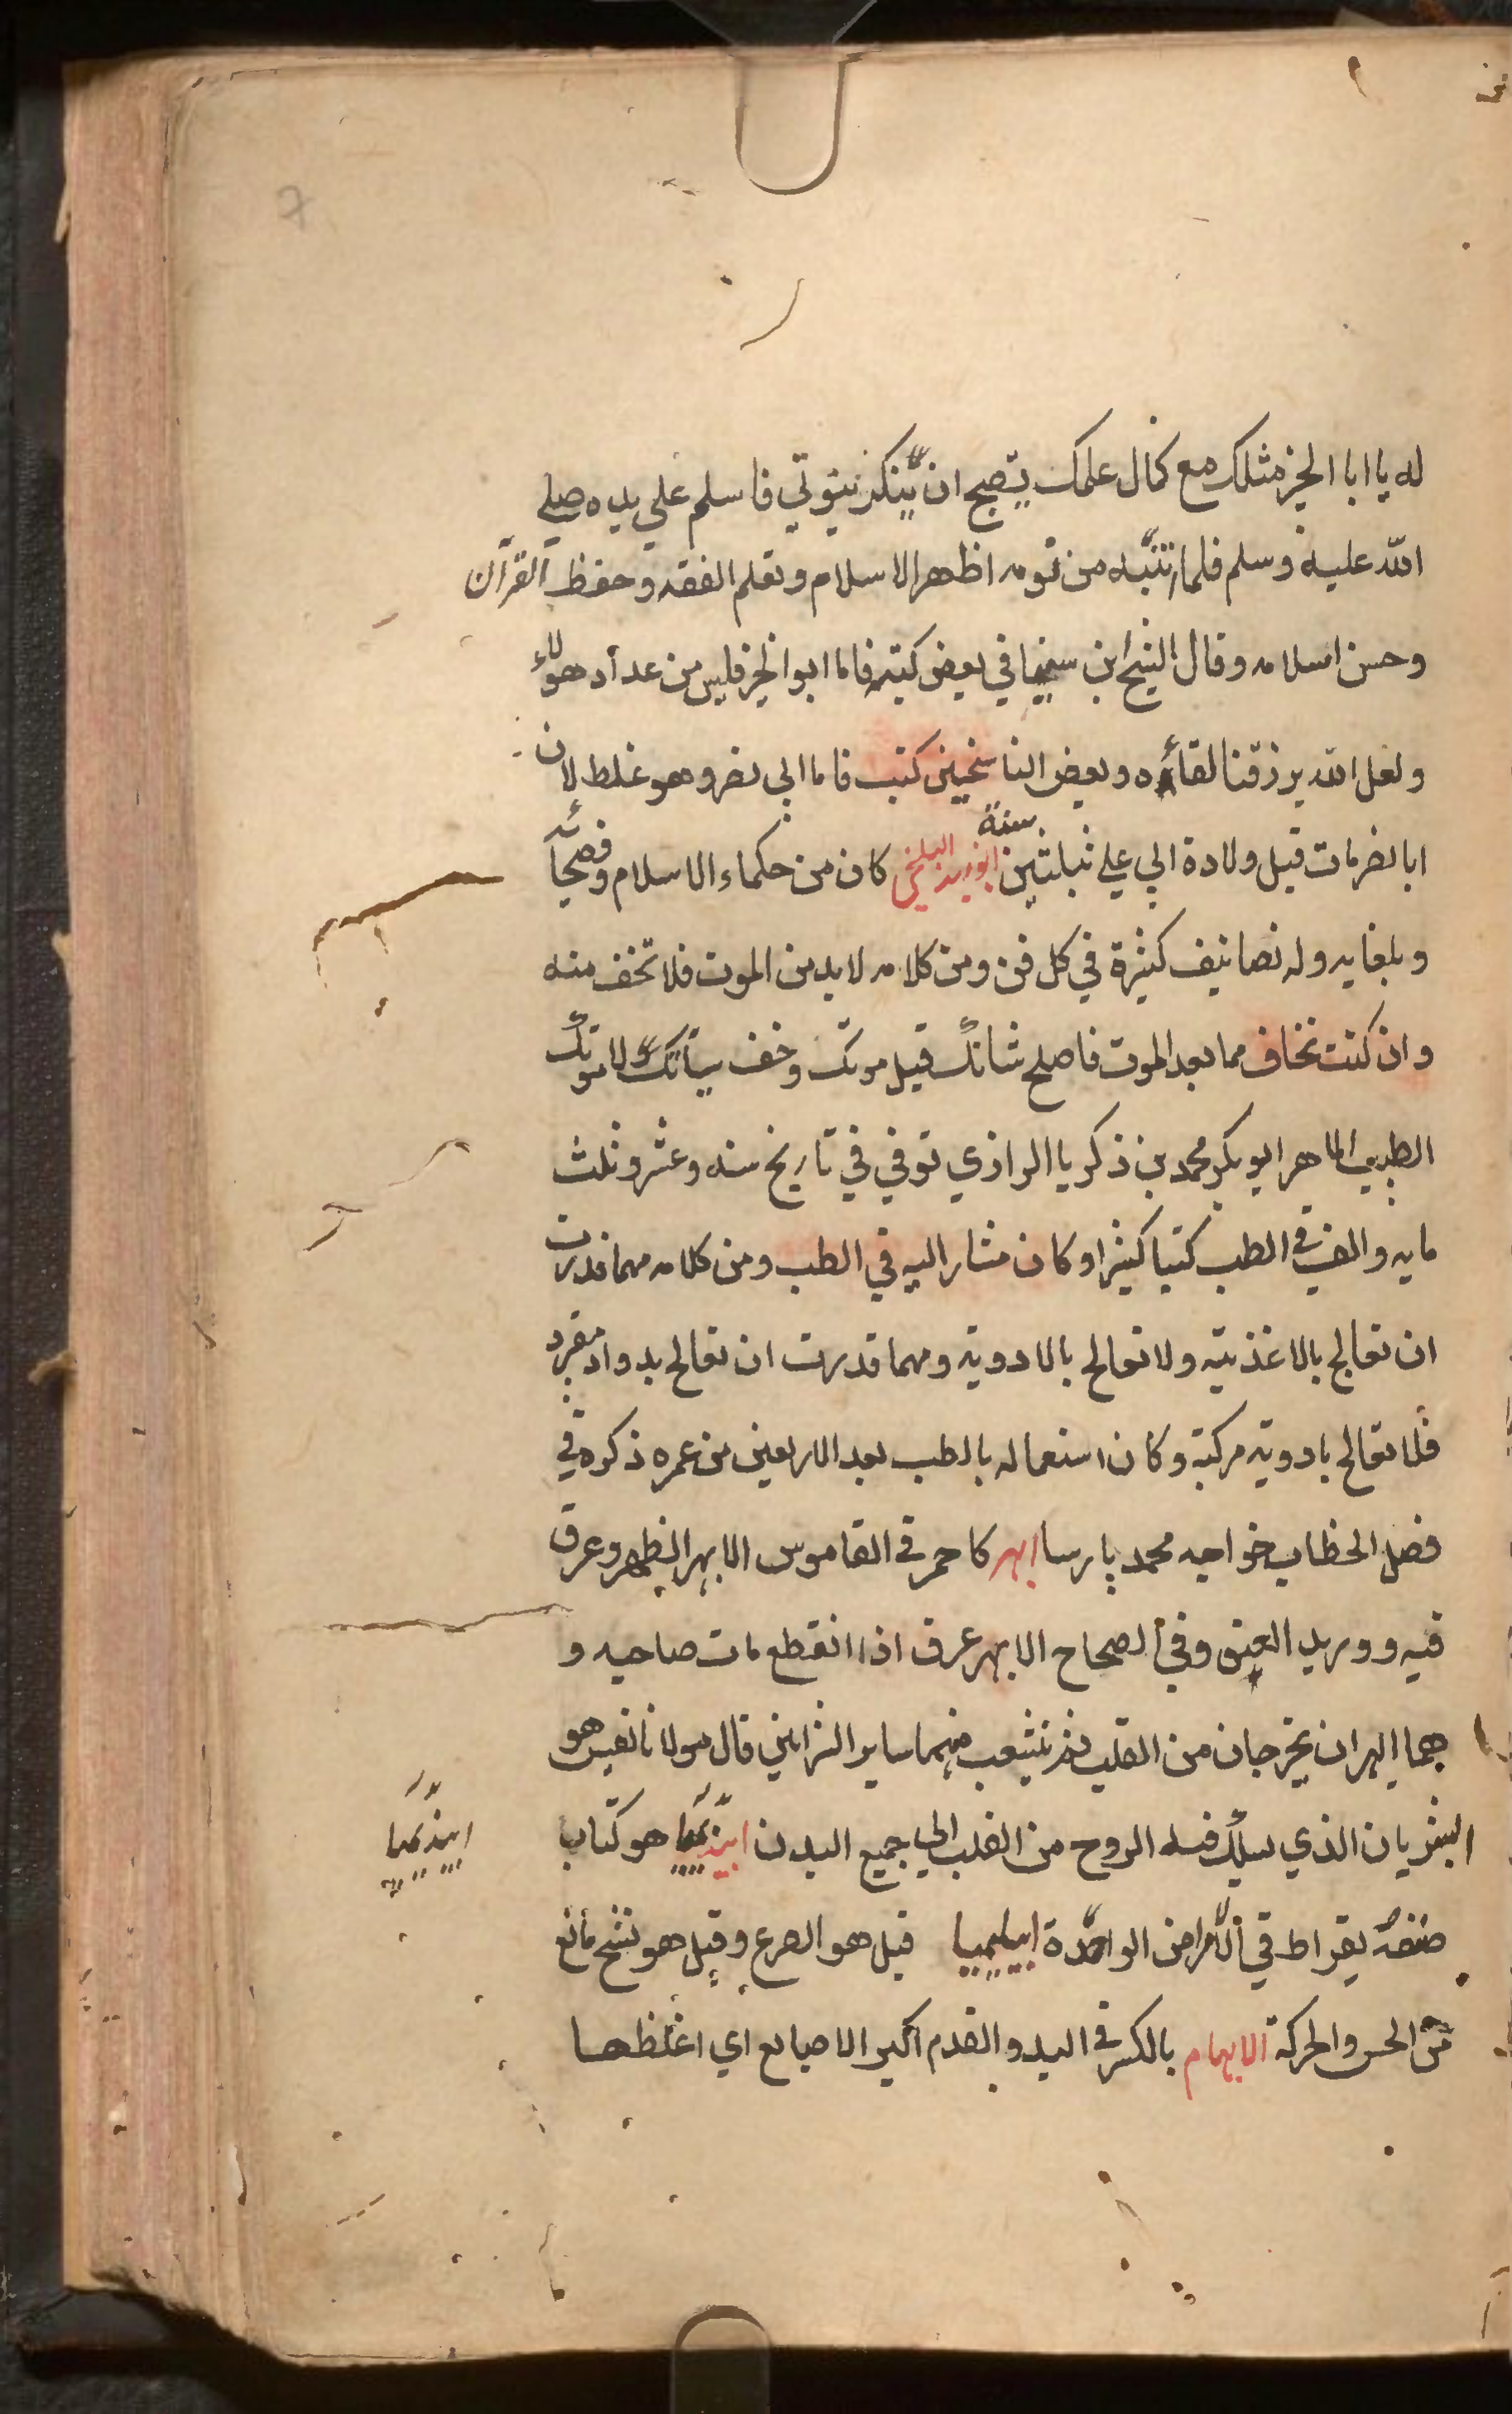 له يا ابا الخير مثلك مع كمال علمك يقبح ان ينكر نبوتي فاسلم علي يده صلي
الله عليه وسلم فلما تنبه من نومه اظهر الاسلام وتعلم الفقه وحفظ القرآن
وحسن اسلامه وقال الشيخ ابن سينا في بعض كتبه فاما ابو الخير فليس من عداد هولاء
ولعل الله يرزقنا لقاءه وبعض الناسخين كتب فاما ابي نصر وهو غلط لان
ابا نصر مات قبل ولادة ابي علي بثلثين سنة ابو زيد البلخي كان من حكماء الاسلام وفصحائه
وبلغايه وله تصانيف كثيرة في كل فن ومن كلامه لا بد من الموت فلا تخف منه
وان كنت تخاف مما بعد الموت فاصلح شانك قبل موتك وخف سياتك لا موتك
الطبيب الماهر ابو بكر محمد بن زكريا الرازي توفي في تاريخ سنه وعشر وثلث
مايه والف في الطب كتبا كثيرا وكان مشار اليه في الطب ومن كلامه مهما قدرت
ان تعالج بالاغذيته ولا تعالج بالادويه ومهما قدرت ان تعالج بدواء مفرد
فلا تعالج بادوية مركبة وكان استعماله بالطب بعد الاربعين من عمره ذكره في
فصل الخطاب خواجه محمد پارسا ابهر كاحمر في القاموس الابهر الظهر وعرق
فيه ووريد العنق وفي الصحاح الابهر عرق اذا انقطع مات صاحبه و
هما ابهران يخرجان من القلب ثم تتشعب منهما ساير الشرايين قال مولانا نفيس هو
الشريان الذي يسلك فيه الروح من القلب الي جميع البدن ابيذيميا هو كتاب
ابيذيميا
صنفه بقراط في الامراض الوافدة ابيليميا قيل هو الصرع وقيل هو تشنج مانع
من الحس والحركة الابهام بالكسر في اليد والقدم اكبر الاصابع اي اغلظها